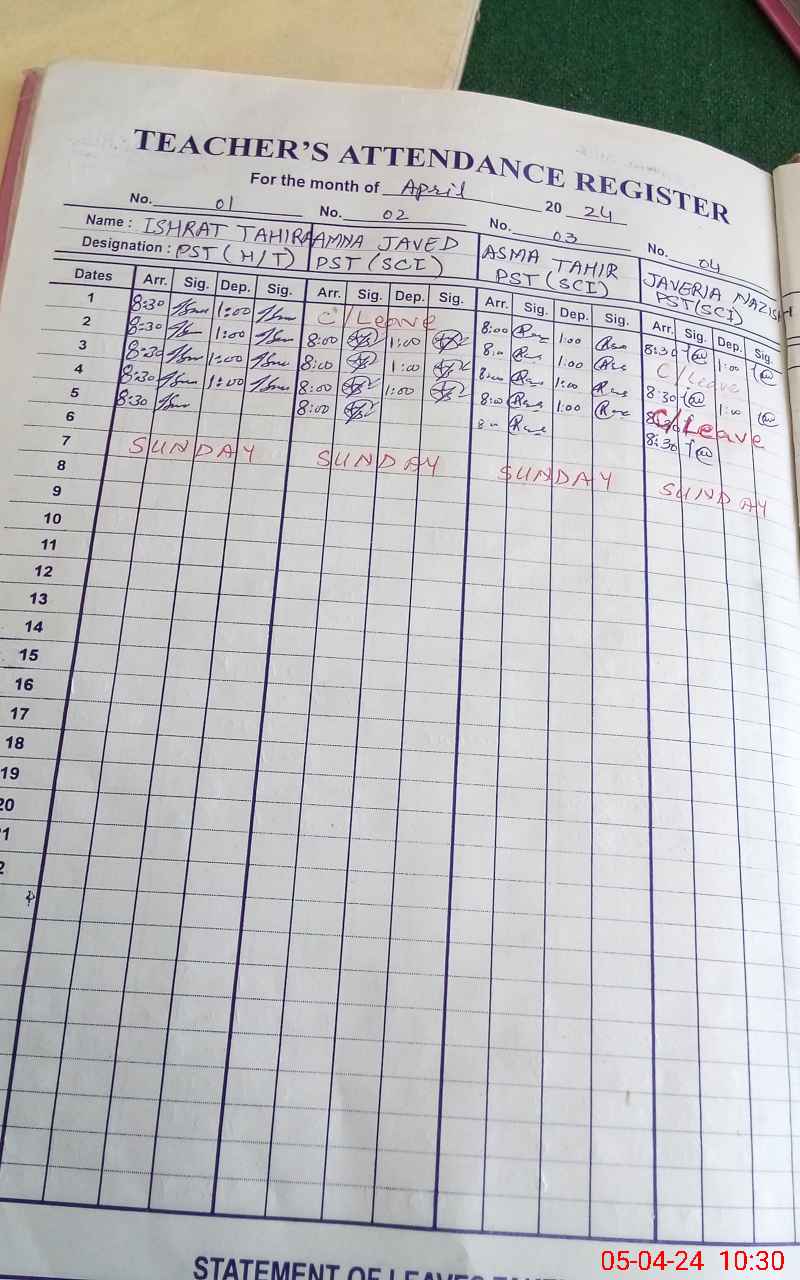 TEACHER'S ATTENDANCE REGISTER
For the month of April 20 24
No. 01 No. 02 No. 03 No. 04
Name : ISHRAT TAHIRA AMNA JAVED ASMA TAHIR JAVERIA NAZISH
Designation : PST (H/T) PST (SCI) PST (SCI) PST (SCI)
Dates Arr. Sig. Dep. Sig. Arr. Sig. Dep. Sig. Arr. Sig. Dep. Sig. Arr. Sig. Dep. Sig.
1 8:30 1:00 C/Leave 8:00 1:00 8:30 1:00
2 8:30 1:00 8:00 1:00 8:00 1:00 C/Leave
3 8:30 1:00 8:00 1:00 8:00 1:00 8:30 1:00
4 8:30 1:00 8:00 1:00 8:00 1:00 C/Leave
5 8:30 8:00 8:00 8:30
6
7 SUNDAY SUNDAY SUNDAY SUNDAY
8
9
10
11
12
13
14
15
16
17
18
19
20
STATEMENT OF LEAVES
05-04-24 10:30